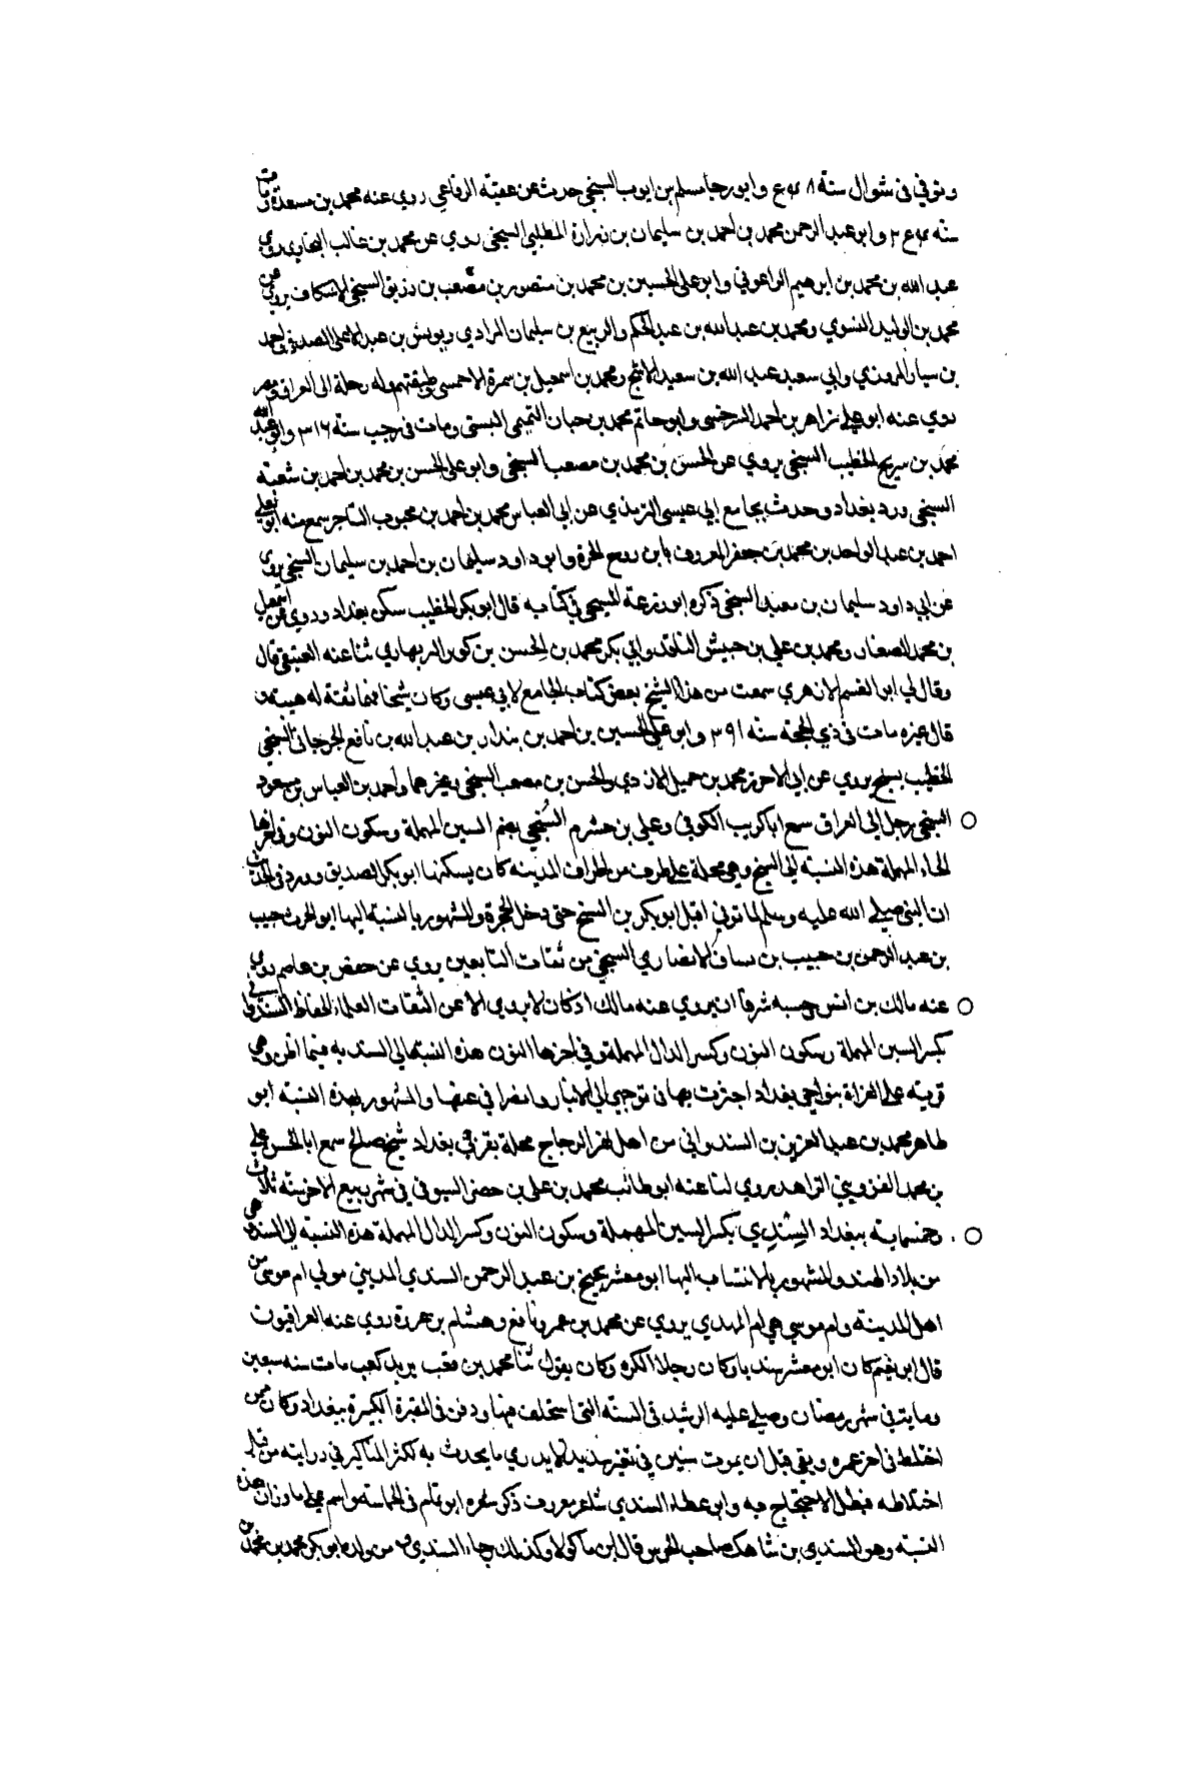 وتوفي في شوال سنة وابو رجا مسلم بن ايوب السنجي حدث عن عقبة الرفاعي روي عنه محمد بن مسعدة ومات
سنة وابو عبد الرحمن محمد بن احمد بن سليمان بن زرارة المطلبي السنجي روي عن محمد بن غالب البخاري روي
عبد الله بن محمد بن ابرهيم الزاغوني وابو علي الحسين بن محمد بن منصور بن مصعب بن رزيق السنجي الاسكاف يروي عن
محمد بن الوليد النسوي ومحمد بن عبد الله بن عبد الحكم والربيع بن سليمان المرادي ويونس بن عبد الاعلي الصدفي واحمد
بن سيار المروزي وابي سعيد عبد الله بن سعيد الاشج ومحمد بن اسمعيل بن سمرة الاحمسي وطبقتهم وله رحلة الى العراق ومصر
روي عنه ابو علي زاهر بن احمد السرخسي وابو حاتم محمد بن حبان التميمي البستي ومات في رجب سنة ٣١٦ وابو عبد الله
محمد بن سريج الخطيب السنجي يروي عن الحسن بن محمد بن مصعب السنجي وابو علي الحسن بن محمد بن احمد بن شعبة
السنجي ورد بغداد وحدث بجامع ابي عيسى الترمذي عن ابي العباس محمد بن احمد بن محبوب التاجر سمع منه ابو يعلي
احمد بن عبد الواحد بن محمد بن جعفر المعروف بابن زوج الحرة وابو داود سليمان بن احمد بن سليمان السنجي يروي
عن ابي داود سليمان بن معبد السنجي ذكره ابو زرعة السنجي في كتابه قال ابو بكر الخطيب سكن بغداد وروي عن اسمعيل
بن محمد الصفار ومحمد بن علي بن حبيش الناقد وابي بكر محمد بن الحسن بن كوثر البربهاري ثنا عنه العتيقي قال
وقال لي ابو القسم الازهري سمعت من هذا الشيخ بعض كتاب الجامع لابي عيسى وكان شيخا فهما ثقة له هيبة
قال غيره مات في ذي الحجة سنة ٣٩١ وابو علي الحسين بن احمد بن بندار بن عبد الله بن نافع الجرجاني السنجي
الخطيب بسنج يروي عن ابي الاحرز محمد بن جميل الازدي والحسن بن مصعب السنجي وغيرهما واحمد بن العباس بن مسعود
السنجي رحل الى العراق سمع ابا كريب الكوفي وعلي بن خشرم السُنْحي بضم السين المهملة وسكون النون وفي اخرها
الحاء المهملة هذه النسبة الى السنح وهي محلة على طرف من اطراف المدينة كان يسكنها ابو بكر الصديق وورد في الحديث
ان النبي صلي الله عليه وسلم لما توفي اقبل ابو بكر بن السنح حتى دخل الحجرة والمشهور بالنسبة اليها ابو الحرث خبيب
بن عبد الرحمن بن خبيب بن يساف الانصاري السنحي من ثقات التابعين يروي عن حفص بن عاصم روي
عنه مالك بن انس وحسبه شرفا ان يروي عنه مالك اذ كان لا يروي الا عن الثقات العلماء الحفاظ السندواني
بكسر السين المهملة وسكون النون وكسر الدال المهملة وفي اخرها النون هذه النسبة الي السندية فيما اظن وهي
قرية على الفراة بنواحي بغداد اجتزت بها في توجهي الي الانبار وانصرافي عنها والمشهور بهذه النسبة ابو
طاهر محمد بن عبد العزيز بن السندواني من اهل نهر الدجاج محلة بغربي بغداد شيخ صالح سمع ابا الحسن علي
بن محمد القزويني الزاهد روي لنا عنه ابو طالب محمد بن علي بن حضر الصوفي في شهر ربيع الاخر سنة ثلاث
وخمسماية ببغداد السِنْدي بكسر السين المهملة وسكون النون وكسر الدال المهملة هذه النسبة الي السند وهي
من بلاد الهند والمشهور بالانتساب اليها ابو معشر نجيح بن عبد الرحمن السندي المديني مولي ام موسى من
اهل المدينة وام موسي هي ام المهدي يروي عن محمد بن عمرو ونافع وهشام بن عروة روي عنه العراقيون
قال ابو نعيم كان ابو معشر سنديا وكان رجلا الكن وكان يقول ثنا محمد بن قعب يريد كعب مات سنة سبعين
وماية في شهر رمضان وصلي عليه الرشيد في السنة التي استخلف فيها ودفن في المقبرة الكبيرة ببغداد وكان ممن
اختلط في اخر عمره وبقي قبل ان يموت سنين في تغير شديد لا يدري ما يحدث به لكثر المناكير في روايته من قبل
اختلاطه فبطل الاحتجاج به وابو عطاء السندي شاعر معروف ذكر شعره ابو تمام في الحماسة واسم علي ما وزان هذه
النسبة وهو السندي بن شاهك صاحب الحرس قال ابن ماكولا وكذلك رجاء السندي ومن ولده ابو بكر محمد بن محمد بن